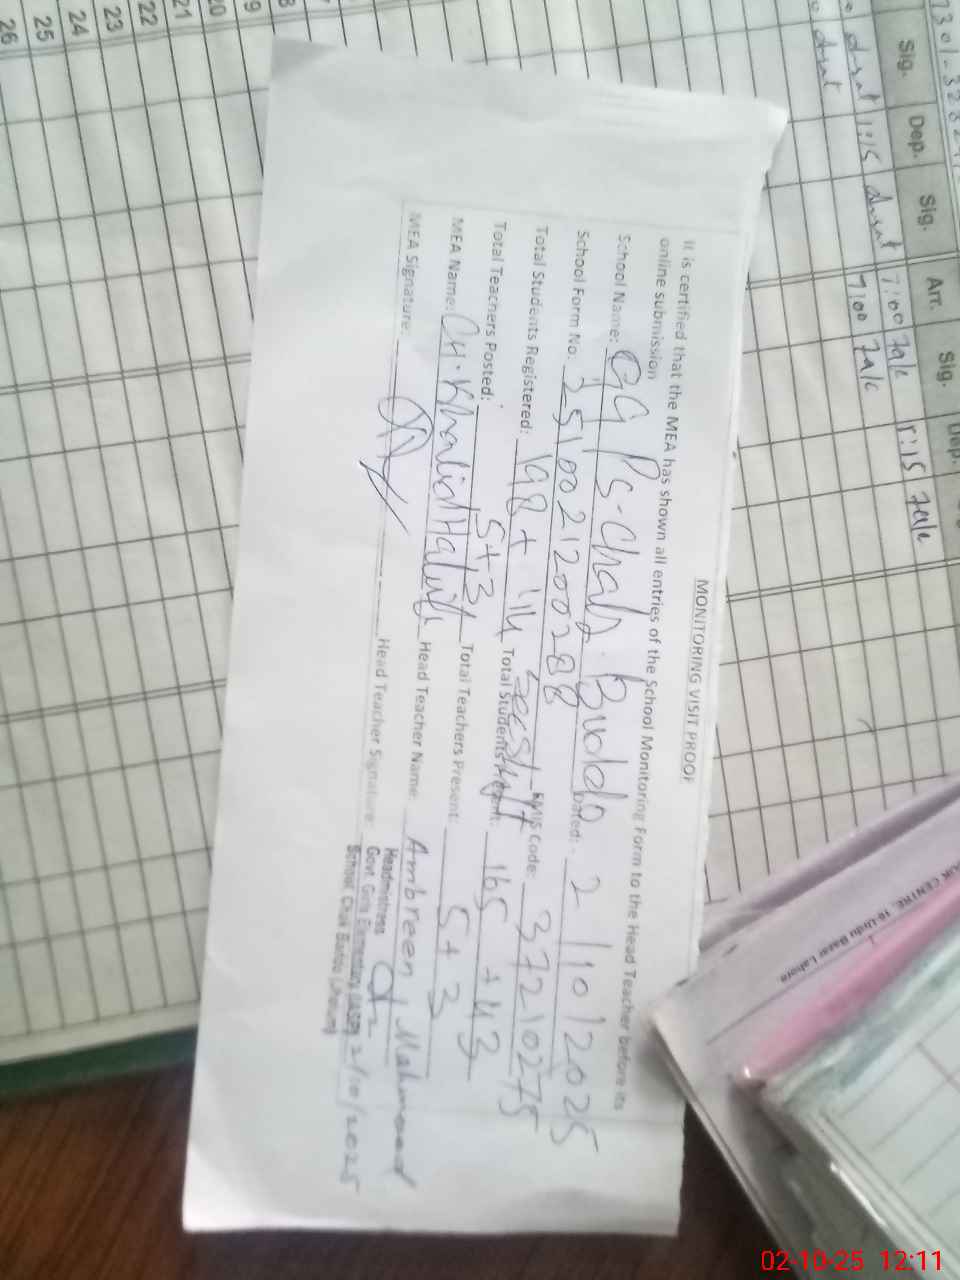 MONITORING VISIT PROOF
It is certified that the MEA has shown all entries of the School Monitoring Form to the Head Teacher before its
online submission
School Name: GG PS-Chak Buddo Dated: 2/10/2025
School Form No: 3510021200288 EMIS Code: 37210275
Total Students Registered: 198 + 114 Total Students 165 + 43
Total Teachers Posted: 5+3 Total Teachers Present: 5+3
MEA Name: CH. Khalid Head Teacher Name: Ambreen Mahmood
MEA Signature: Head Teacher Signature:
Headmistress
Govt. Girls Elementary
School Chak
2/10/2025
Sig. Dep. Sig. Arr. Sig. Dep.
1:15 7:00 1:15
7:00
26 25 24 23 22 21 20
CENTRE, 16-Urdu Bazar Lahore
02-10-25 12:11